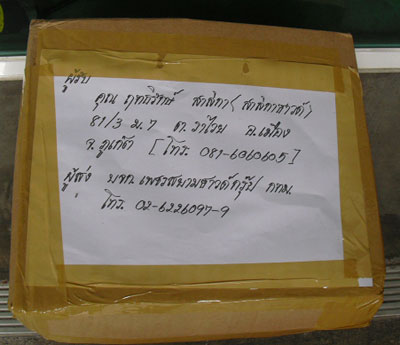 ผู้รับ
คุณ ฤทธิรักษ์ สาลิกา (สาลิกาซาวด์)
81/3 ม.7 ต.ราไวย์ อ.เมือง
จ.ภูเก็ต [โทร. 081-6060605]
ผู้ส่ง บจก. เพชรสยามซาวด์กรุ๊ป กทม.
โทร. 02-6226097-9